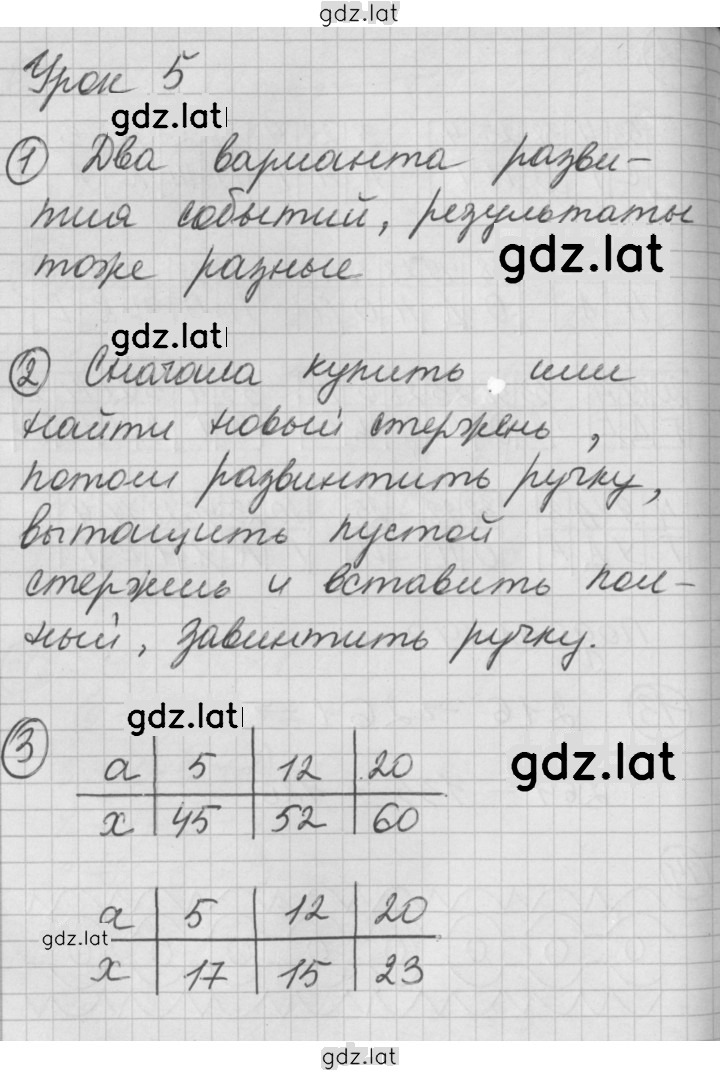 gdz.lat
Урок 5
gdz.lat
① Два варианта разви-
тия событий, результаты
gdz.lat
тоже разные
gdz.lat
② Сначала купить или
найти новый стержень,
потом развинтить ручку,
вытащить пустой
стержень и вставить пол-
ный, завинтить ручку.
gdz.lat
③
gdz.lat
a | 5 | 12 | 20
x | 45 | 52 | 60
a | 5 | 12 | 20
gdz.lat
x | 17 | 15 | 23
gdz.lat